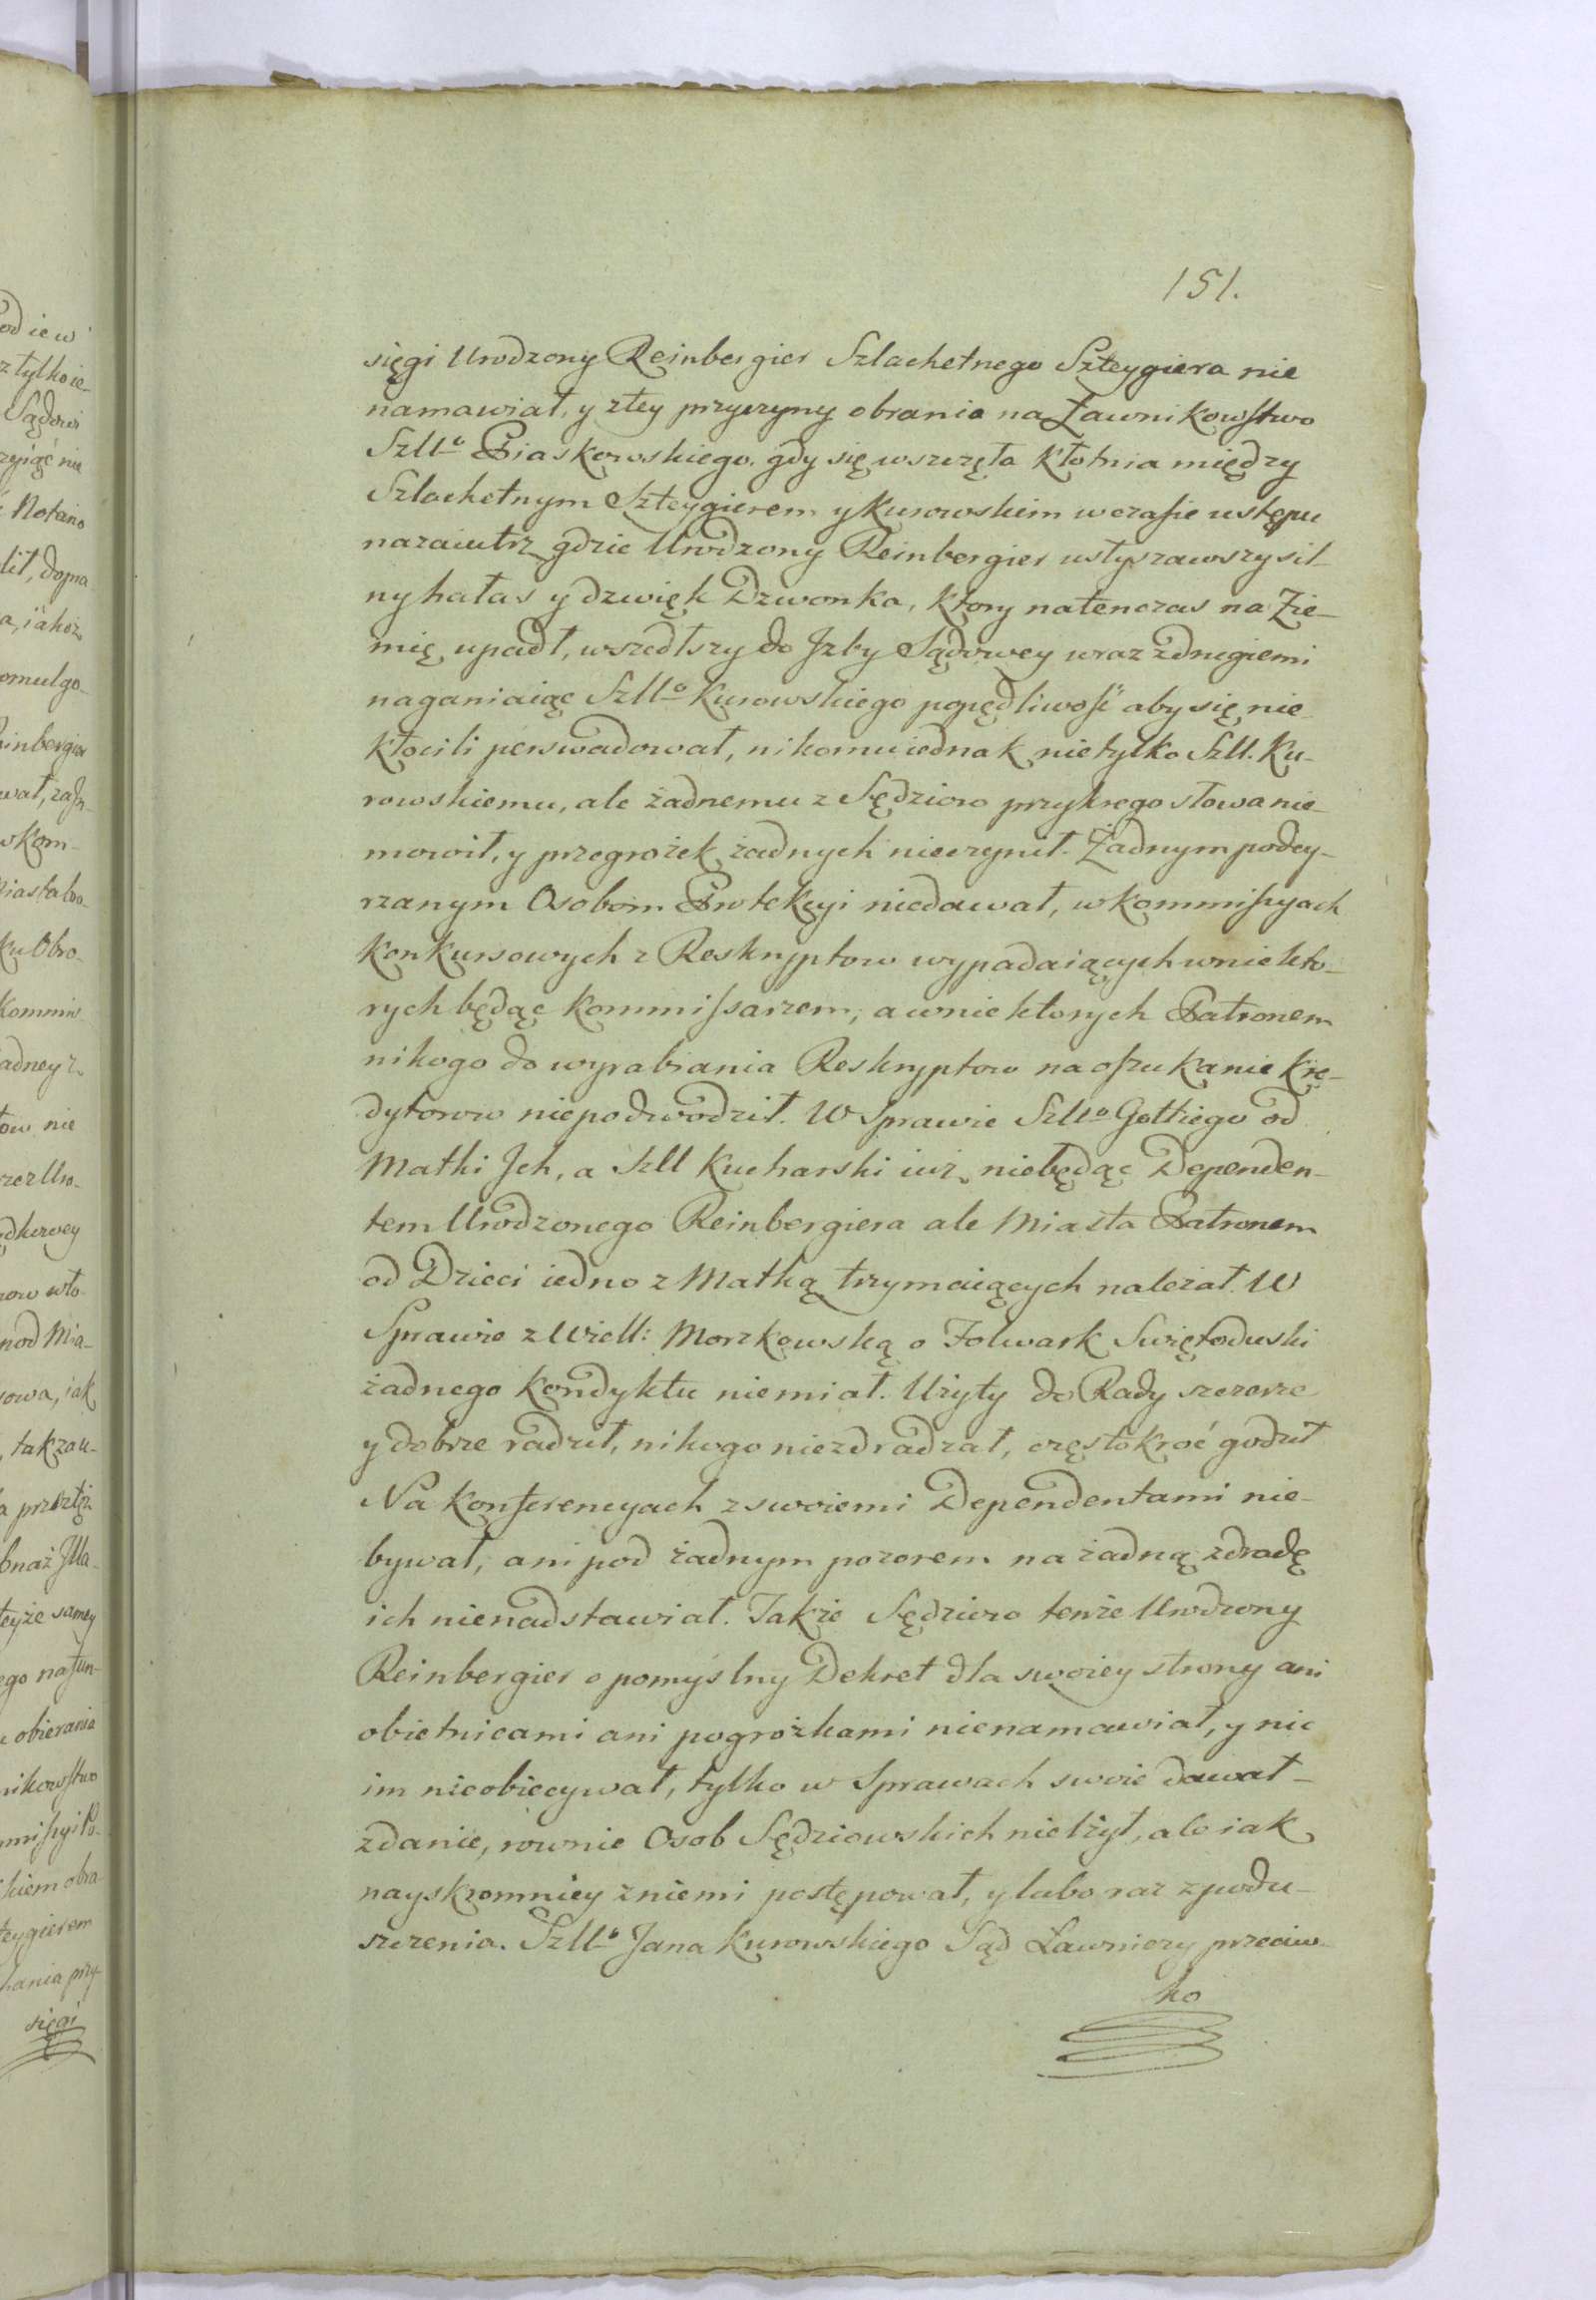 151.
sięgi Urodzony Reinbergier Szlachetnego Szteygiera nie
namawiał, y ztey przyczyny obrania na Ławnikowstwo
Szll-o Piaskowskiego. gdy się wszczęła kłotnia między
Szlachetnym Szteygierem y Kurowskim wczasie ustępu
nazaiutrz gdzie Urodzony Reinbergier usłyszawszy sil-
ny hałas y dzwięk Dzwonka, ktory natenczas na Zie-
mię upadł, wszedłszy do Izby Sądowey wraz zdrugiemi
naganiaiąc Szll-o Kurowskiego popędliwość aby się nie
kłocili perswadował, nikomu iednak nietylko Szll. Ku-
rowskiemu, ale żadnemu z Sędziow przykrego słowa nie-
mowił, y przegrożek żadnych nieczynił. Żadnym podey-
rzanym Osobom Protekcyi niedawał, w kommissyach
konkursowych z Reskryptow wypadaiących wniekto-
rych będąc kommissarzem, a wniektorych Patronem
nikogo do wyrabiania Reskryptow na oszukanie kre-
dytorow niepodwodził. W Sprawie Szll-o Gotkiego od
Matki Ich, a Szll Kucharski iuż niebędąc Dependen-
tem Urodzonego Reinbergiera ale Miasta Patronem
od Dzieci iedno z Matką trzymaiących należał. W
Sprawie z Wiell: Morzkowską o Folwark Swiętoduski
żadnego kondyktu niemiał. Użyty do Rady szczerze
y dobrze radził, nikogo niezdradzał, częstokroć godził
Na konferencyach zswoiemi Dependentami nie-
bywał, ani pod żadnym pozorem na żadną zdradę
ich nienadstawiał. Także Sędziow tenże Urodzony
Reinbergier o pomyślny Dekret dla swoiey strony ani
obietnicami ani pogrożkami nienamawiał, y nic
im nieobiecywał, tylko w Sprawach swoie dawał-
zdanie, rownie Osob Sędziowskich nielżył, ale iak
nayskromniey zniemi postępował, y lubo raz zpodu-
szczenia. Szll-o Jana Kurowskiego Sąd Ławniczy przeciw-
ko